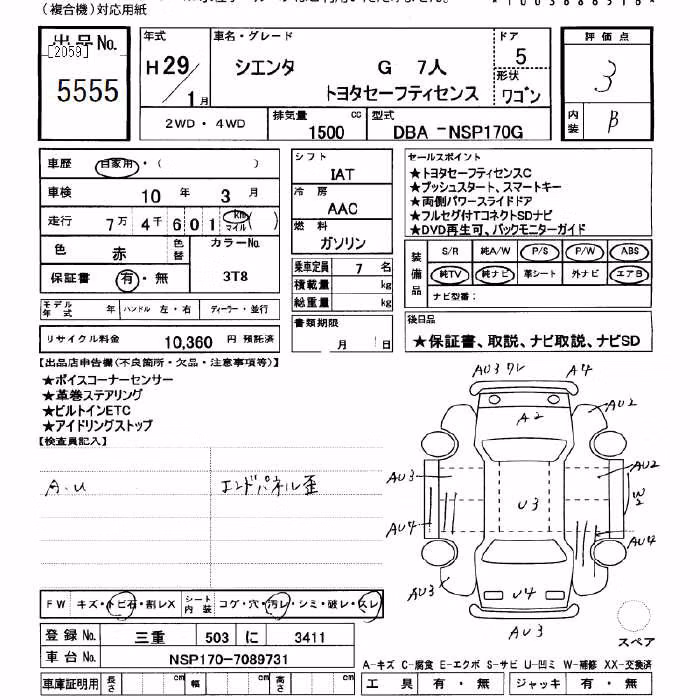 (複合機)対応用紙
出品No.
[2059]
5555
年式
H29/1月
車名・グレード
シエンタ G 7人
トヨタセーフティセンス
ドア
5
形状
ワゴン
2WD・4WD
排気量
1500 cc
型式
DBA-NSP170G
評価点
3
内装
B
車歴 自家用・( )
車検 10年 3月
走行 7万4千601 km マイル( )
色 赤 色替 カラーNo.
保証書 有・無 3T8
モデル年式 年 ハンドル 左・右 ディーラー・並行
リサイクル料金 10,360 円 預託済
シフト
IAT
冷房
AAC
燃料
ガソリン
乗車定員 7 名
積載量 kg
総重量 kg
書類期限
月 日
セールスポイント
★トヨタセーフティセンスC
★プッシュスタート、スマートキー
★両側パワースライドドア
★フルセグ付TコネクトSDナビ
★DVD再生可、バックモニターガイド
装備品
S/R 純A/W P/S P/W ABS
純TV 純ナビ 革シート 外ナビ エアB
ナビ型番:
後日品
★保証書、取説、ナビ取説、ナビSD
【出品店申告欄(不良箇所・欠品・注意事項等)】
★ボイスコーナーセンサー
★革巻ステアリング
★ビルトインETC
★アイドリングストップ
【検査員記入】
A・U エンドパネル歪
AU3 ワレ A4
A2 AU2
AU3 AU2
U3 W2
AU4 AU4
AU3 U4
AU3
スペア
FW キズ・トビ石・割レX シート内装 コゲ・穴・汚レ・シミ・破レ・スレ
登録No. 三重 503 に 3411
車台No. NSP170-7089731
車庫証明用 長さ cm 幅 cm 高さ cm
A-キズ C-腐食 E-エクボ S-サビ U-凹ミ W-補修 XX-交換済
工具 有・無 ジャッキ 有・無